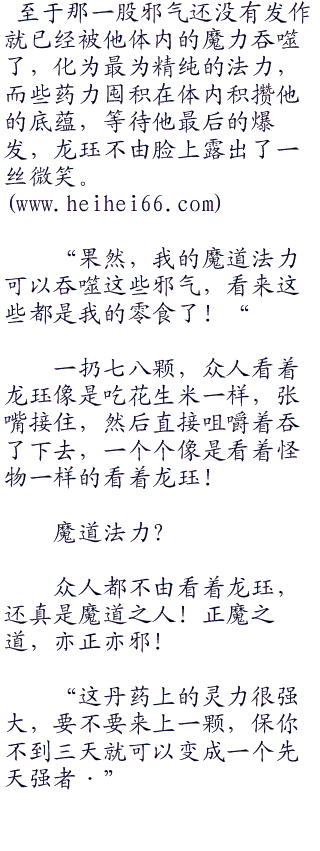 至于那一股邪气还没有发作
就已经被他体内的魔力吞噬
了，化为最为精纯的法力，
而些药力囤积在体内积攒他
的底蕴，等待他最后的爆
发，龙珏不由脸上露出了一
丝微笑。
(www.heihei66.com)
“果然，我的魔道法力
可以吞噬这些邪气，看来这
些都是我的零食了！“
一扔七八颗，众人看着
龙珏像是吃花生米一样，张
嘴接住，然后直接咀嚼着吞
了下去，一个个像是看着怪
物一样的看着龙珏！
魔道法力？
众人都不由看着龙珏，
还真是魔道之人！正魔之
道，亦正亦邪！
“这丹药上的灵力很强
大，要不要来上一颗，保你
不到三天就可以变成一个先
天强者·”